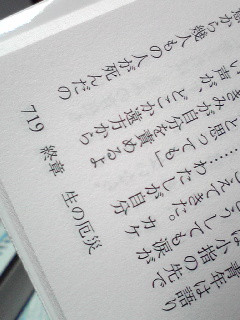 青年は語り
は小指の先で
うしても涙が
えてきた。カケ
……わたしが自分
と思っても」
きみが自分を責めるよ
い声が、どこか遠方から
から幾人もの人が死んだの
719 終章 生の厄災